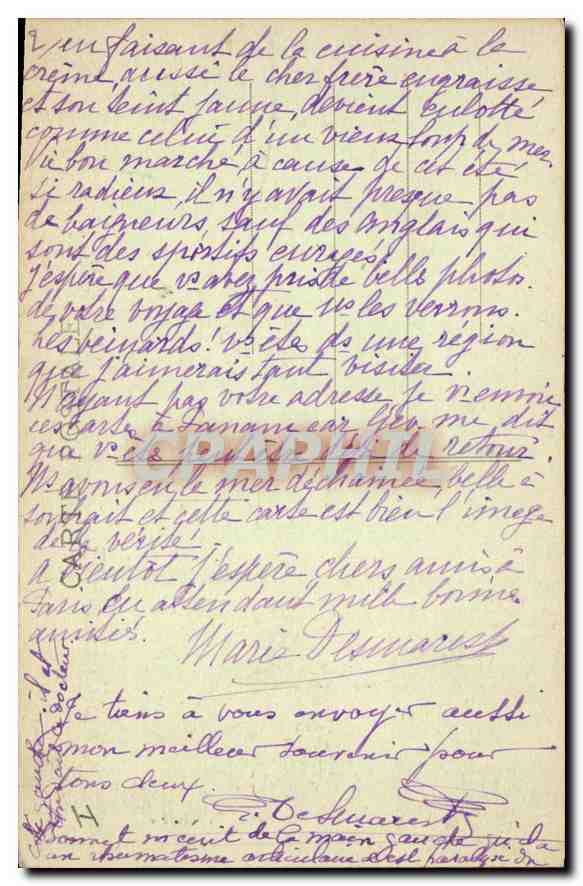 2) en faisant de la cuisine à la
crème, aussi le cher frère engraisse
et son teint jaune, devient culotté
comme celui d'un vieux loup de mer.
Vie bon marché à cause de cet été
si radieux, il n'y avait presque pas
de baigneurs, sauf des anglais qui
sont des sportifs enragés!
J'espère que vs avez pris de belle photos
de votre voyage et que ns les verrons.
Les veinards! vs êtes ds une région
que j'aimerais tant visiter.
N'ayant pas votre adresse je v. envoie
ces cartes à car Géo me dit
que vs êtes peut-être déjà de retour.
Ns avons eu la mer déchaînée, belle à
souhait et cette carte est bien l'image
de la vérité!
A bientôt j'espère chers amis à
en attendant mille bonnes
amitiés.
Marie Desmarest
Je tiens à vous envoyer aussi
mon meilleur souvenir pour
tous deux.
Desmarest
écrit de la main gauche
un rhumatisme
CARTE POSTALE
CPAPHIL